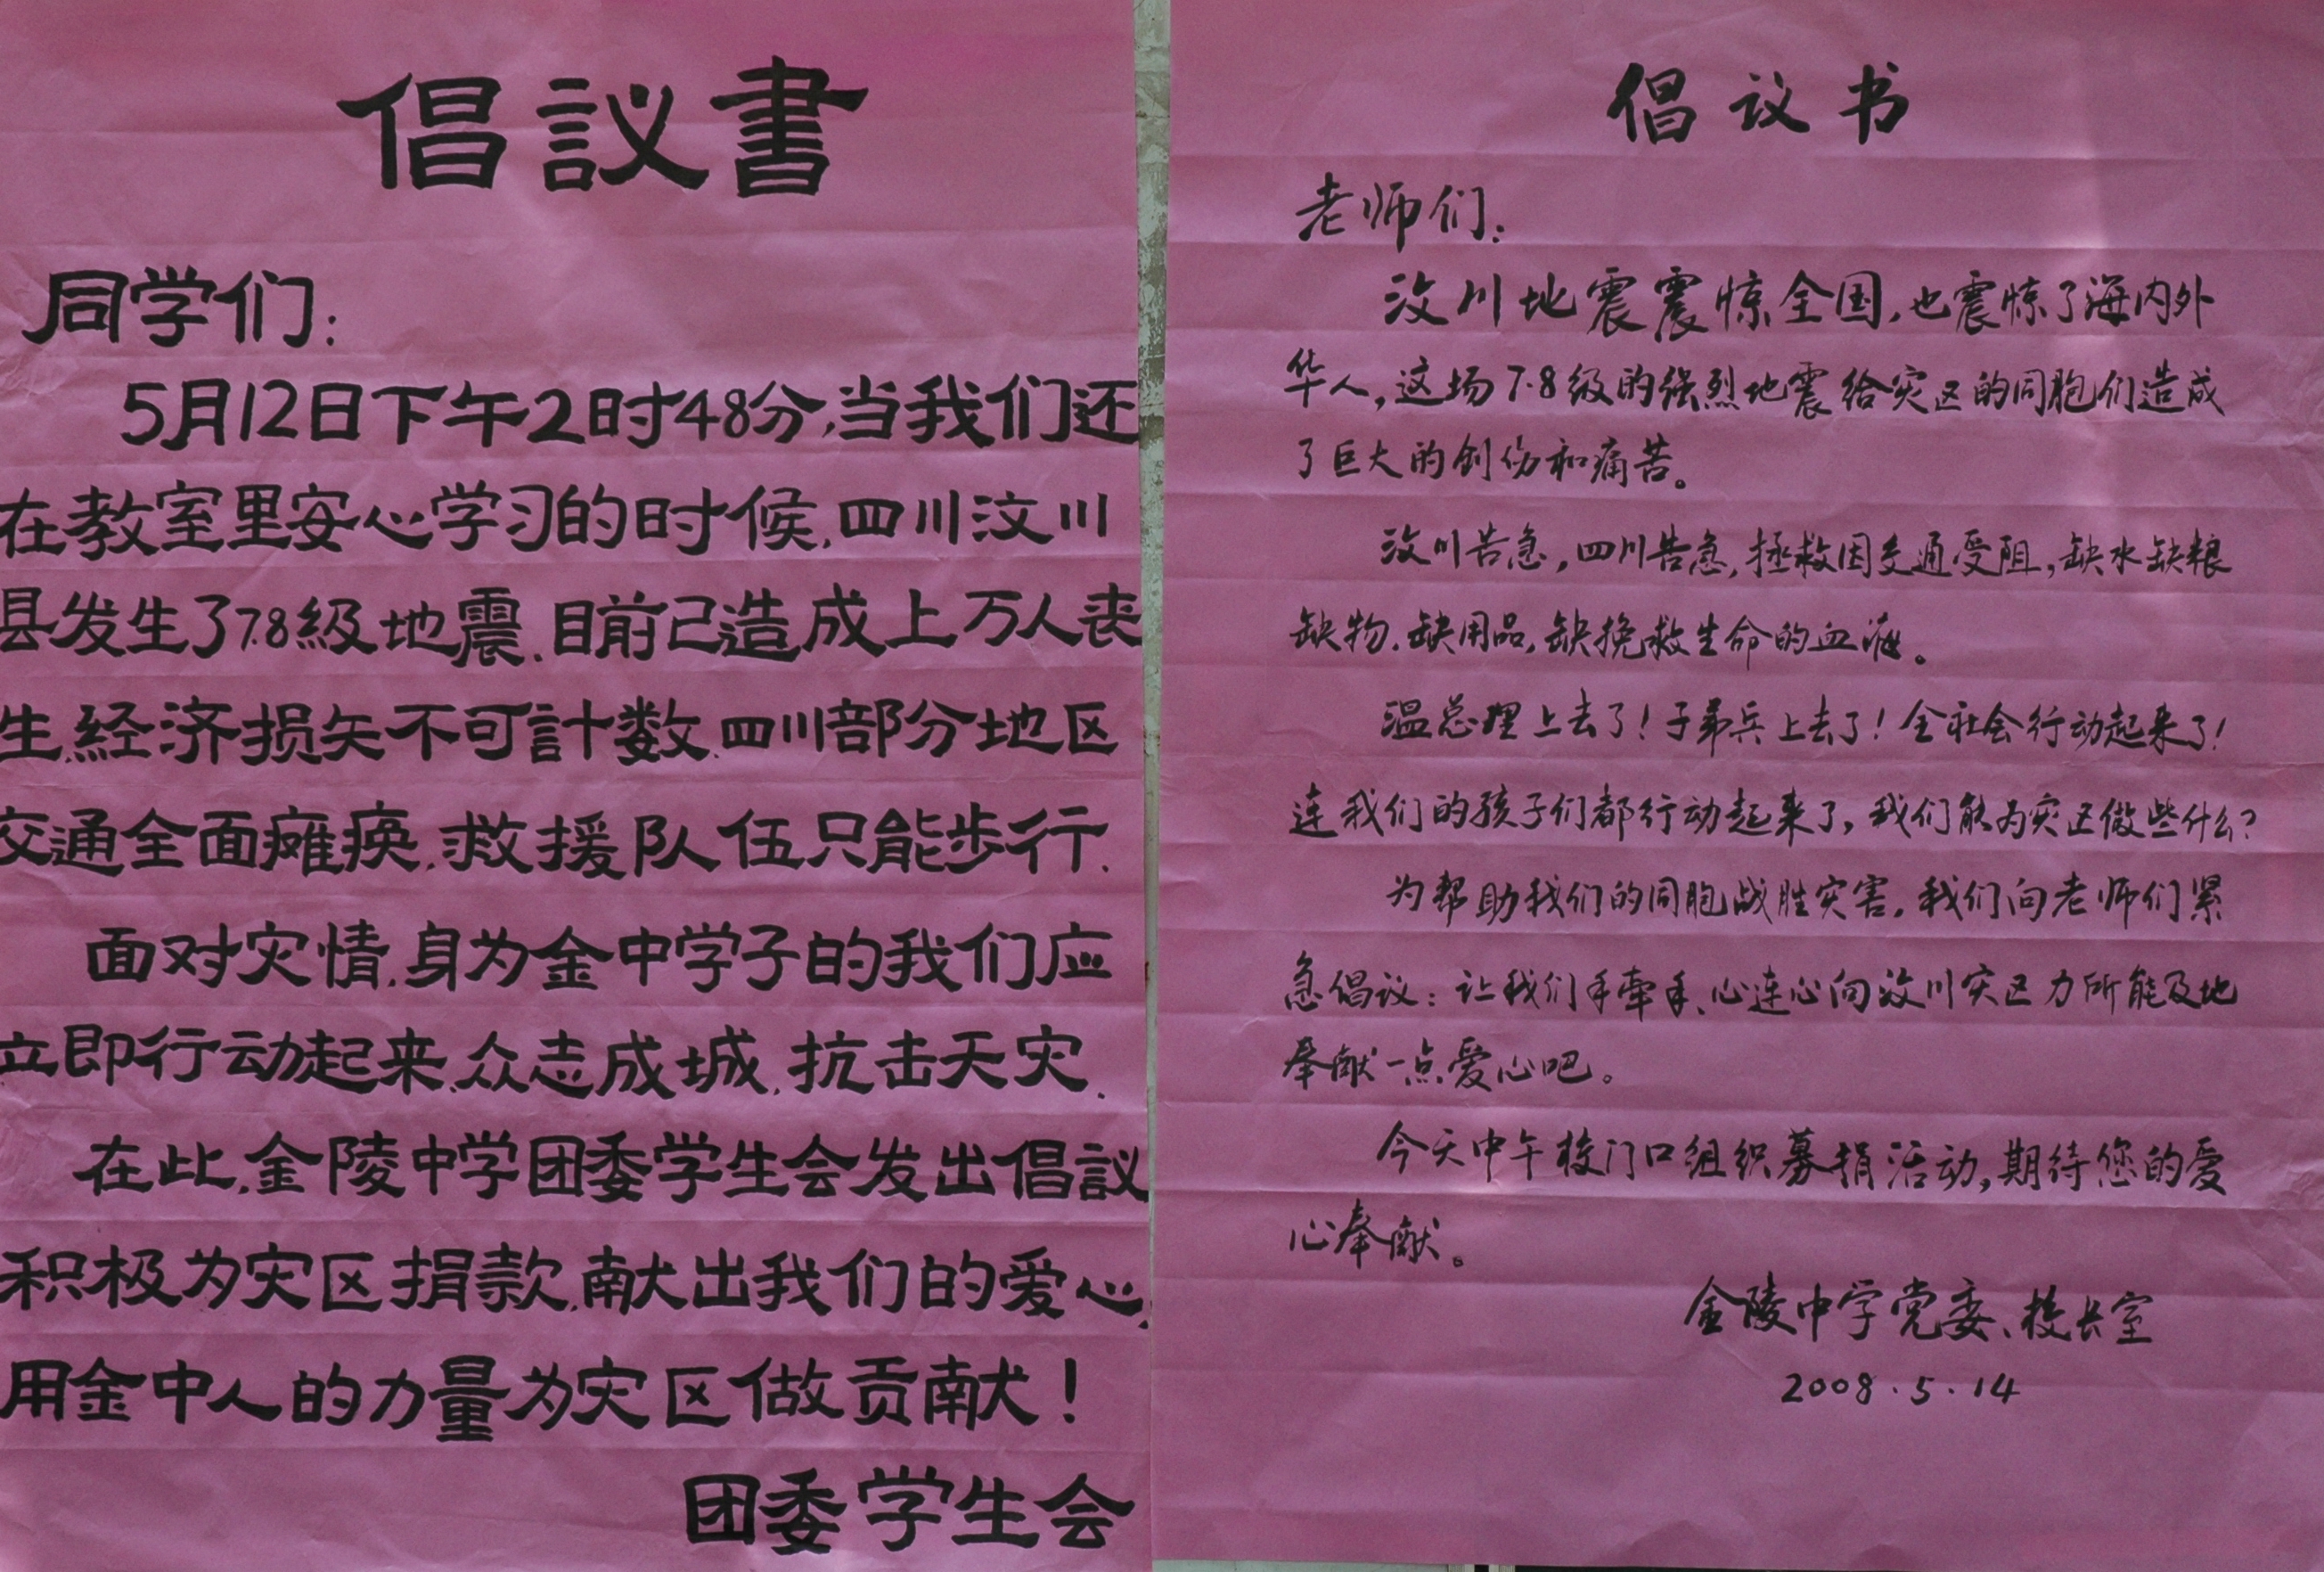 倡議書
同学们：
5月12日下午2时48分,当我们还
在教室里安心学习的时候,四川汶川
县发生了7.8級地震.目前已造成上万人丧
生,経济损失不可計数.四川部分地区
交通全面瘫痪,救援队伍只能步行.
面对灾情,身为金中学子的我们应
立即行动起来,众志成城,抗击天灾.
在此,金陵中学团委学生会发出倡議
积极为灾区捐款,献出我们的爱心,
用金中人的力量为灾区做贡献！
团委学生会
倡议书
老师们：
汶川地震震惊全国,也震惊了海内外
华人,这场7.8级的强烈地震给灾区的同胞们造成
了巨大的创伤和痛苦。
汶川告急,四川告急,拯救因交通受阻,缺水缺粮
缺物.缺用品,缺挽救生命的血液。
温总理上去了！子弟兵上去了！全社会行动起来了！
连我们的孩子们都行动起来了,我们能为灾区做些什么？
为帮助我们的同胞战胜灾害,我们向老师们紧
急倡议：让我们手牵手、心连心向汶川灾区力所能及地
奉献一点爱心吧。
今天中午校门口组织募捐活动,期待您的爱
心奉献。
金陵中学党委、校长室
2008.5.14